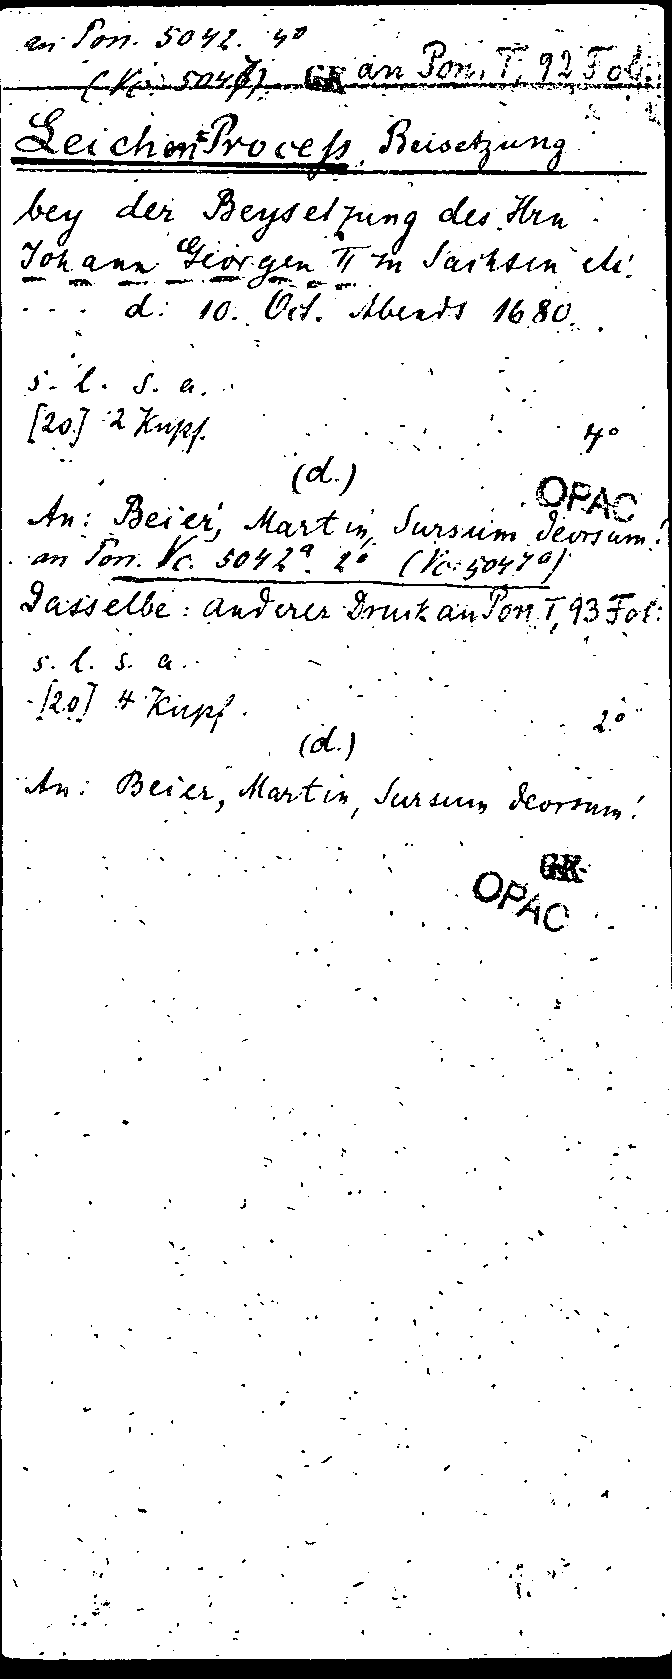 an Pon. 5042. 4°
(Vc. 5047) GK an Pon. T, 92 Fol.
Leichen=Process, Beisetzung
bey der Beysetzung des Hrn
Johann Georgen II zu Sachsen etc.
. . . d: 10. Oct. Abends 1680.
s. l. s. a.
[20] 2 Kupf. 4°
(d.)
OPAC
An: Beier, Martin, Sursum deorsum!
an Pon. Vc. 5042a. 2° (Vc. 5047a)
Dasselbe: anderer Druck an Pon T, 93 Fol:
s. l. s. a.
[20] 4 Kupf. 2°
(d.)
An: Beier, Martin, Sursum deorsum!
GK
OPAC